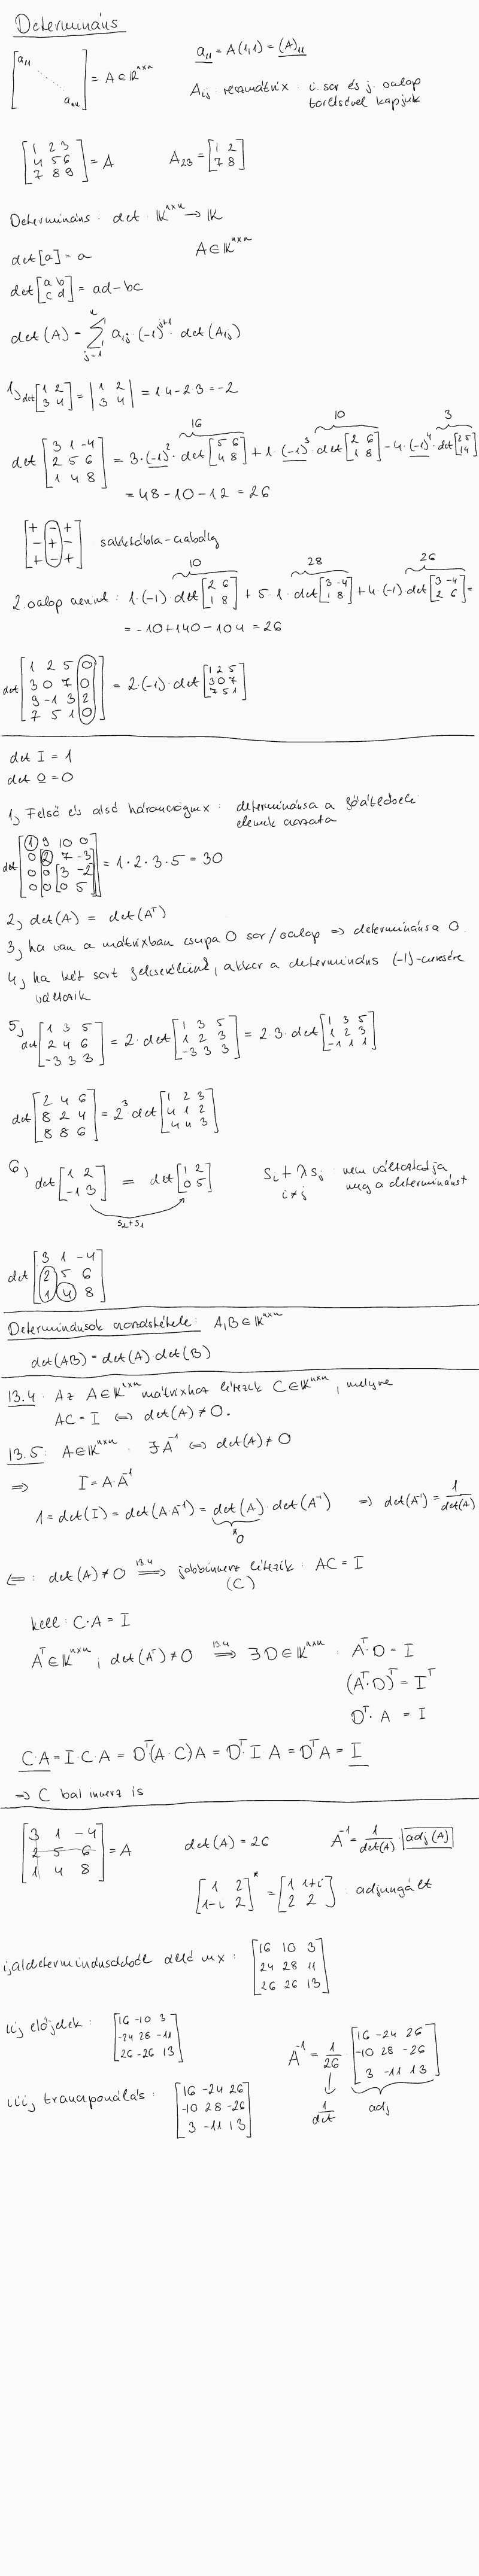 Determináns
[a₁₁ ⋱ aₙₙ] = A ∈ ℝⁿˣⁿ
a₁₁ = A(1,1) = (A)₁₁
A_ij részmátrix : i. sor és j. oszlop
törlésével kapjuk
[1 2 3; 4 5 6; 7 8 9] = A    A₂₃ = [1 2; 7 8]
Determináns : det : 𝕂ⁿˣⁿ → 𝕂
det[a] = a    A ∈ 𝕂ⁿˣⁿ
det[a b; c d] = ad-bc
det(A) = Σ_{j=1}^{n} a₁ⱼ · (-1)^{j+1} · det(A₁ⱼ)
1, det[1 2; 3 4] = |1 2; 3 4| = 1·4-2·3 = -2
16    10    3
det[3 1 -4; 2 5 6; 1 4 8] = 3·(-1)²·det[5 6; 4 8] + 1·(-1)³·det[2 6; 1 8] - 4·(-1)⁴·det[2 5; 1 4]
= 48-10-12 = 26
[+ - +; - + -; + - +] sakktábla-szabály
10    28    26
2. oszlop szerint : 1·(-1)·det[2 6; 1 8] + 5·1·det[3 -4; 1 8] + 4·(-1)·det[3 -4; 2 6] =
= -10+140-104 = 26
det[1 2 5 0; 3 0 7 0; 9 -1 3 2; 7 5 1 0] = 2·(-1)·det[1 2 5; 3 0 7; 7 5 1]
det I = 1
det 0 = 0
1, Felső és alsó háromszögmx : determinánsa a főátlóbeli
elemek szorzata
det[1 9 10 0; 0 2 7 -3; 0 0 3 -2; 0 0 0 5] = 1·2·3·5 = 30
2, det(A) = det(Aᵀ)
3, ha van a mátrixban csupa 0 sor/oszlop ⇒ determinánsa 0.
4, ha két sort felcserélünk, akkor a determináns (-1)-szeresére
változik
5, det[1 3 5; 2 4 6; -3 3 3] = 2·det[1 3 5; 1 2 3; -3 3 3] = 2·3·det[1 3 5; 1 2 3; -1 1 1]
det[2 4 6; 8 2 4; 8 8 6] = 2³·det[1 2 3; 4 1 2; 4 4 3]
6, det[1 2; -1 3] = det[1 2; 0 5]    Sᵢ + λSⱼ : nem változtatja
i≠j    meg a determinánst
S₂+S₁
det[3 1 -4; 2 5 6; 1 4 8]
Determinánsok szorzástétele : A,B ∈ 𝕂ⁿˣⁿ
det(AB) = det(A)·det(B)
13.4 : Az A ∈ 𝕂ⁿˣⁿ mátrixhoz létezik C ∈ 𝕂ⁿˣⁿ, melyre
AC = I ⇔ det(A) ≠ 0.
13.5 : A ∈ 𝕂ⁿˣⁿ. ∃A⁻¹ ⇔ det(A) ≠ 0
⇒    I = A·A⁻¹
1 = det(I) = det(A·A⁻¹) = det(A)·det(A⁻¹) ⇒ det(A⁻¹) = 1/det(A)
≠ 0
⇐ : det(A) ≠ 0 ⇒ (13.4) jobbinverz létezik : AC = I
(C)
kell : C·A = I
Aᵀ ∈ 𝕂ⁿˣⁿ, det(Aᵀ) ≠ 0 ⇒ (13.4) ∃D ∈ 𝕂ⁿˣⁿ : Aᵀ·D = I
(Aᵀ·D)ᵀ = Iᵀ
Dᵀ·A = I
C·A = I·C·A = Dᵀ(A·C)A = Dᵀ·I·A = DᵀA = I
⇒ C bal inverz is
[3 1 -4; 2 5 6; 1 4 8] = A    det(A) = 26    A⁻¹ = 1/det(A) · adj(A)
[1 2; 1-i 2]* = [1 1+i; 2 2] : adjungált
i, aldeterminánsokból álló mx : [16 10 3; 24 28 11; 26 26 13]
ii, előjelek : [16 -10 3; -24 28 -11; 26 -26 13]
A⁻¹ = 1/26 · [16 -24 26; -10 28 -26; 3 -11 13]
iii, transzponálás : [16 -24 26; -10 28 -26; 3 -11 13]
1/det    adj